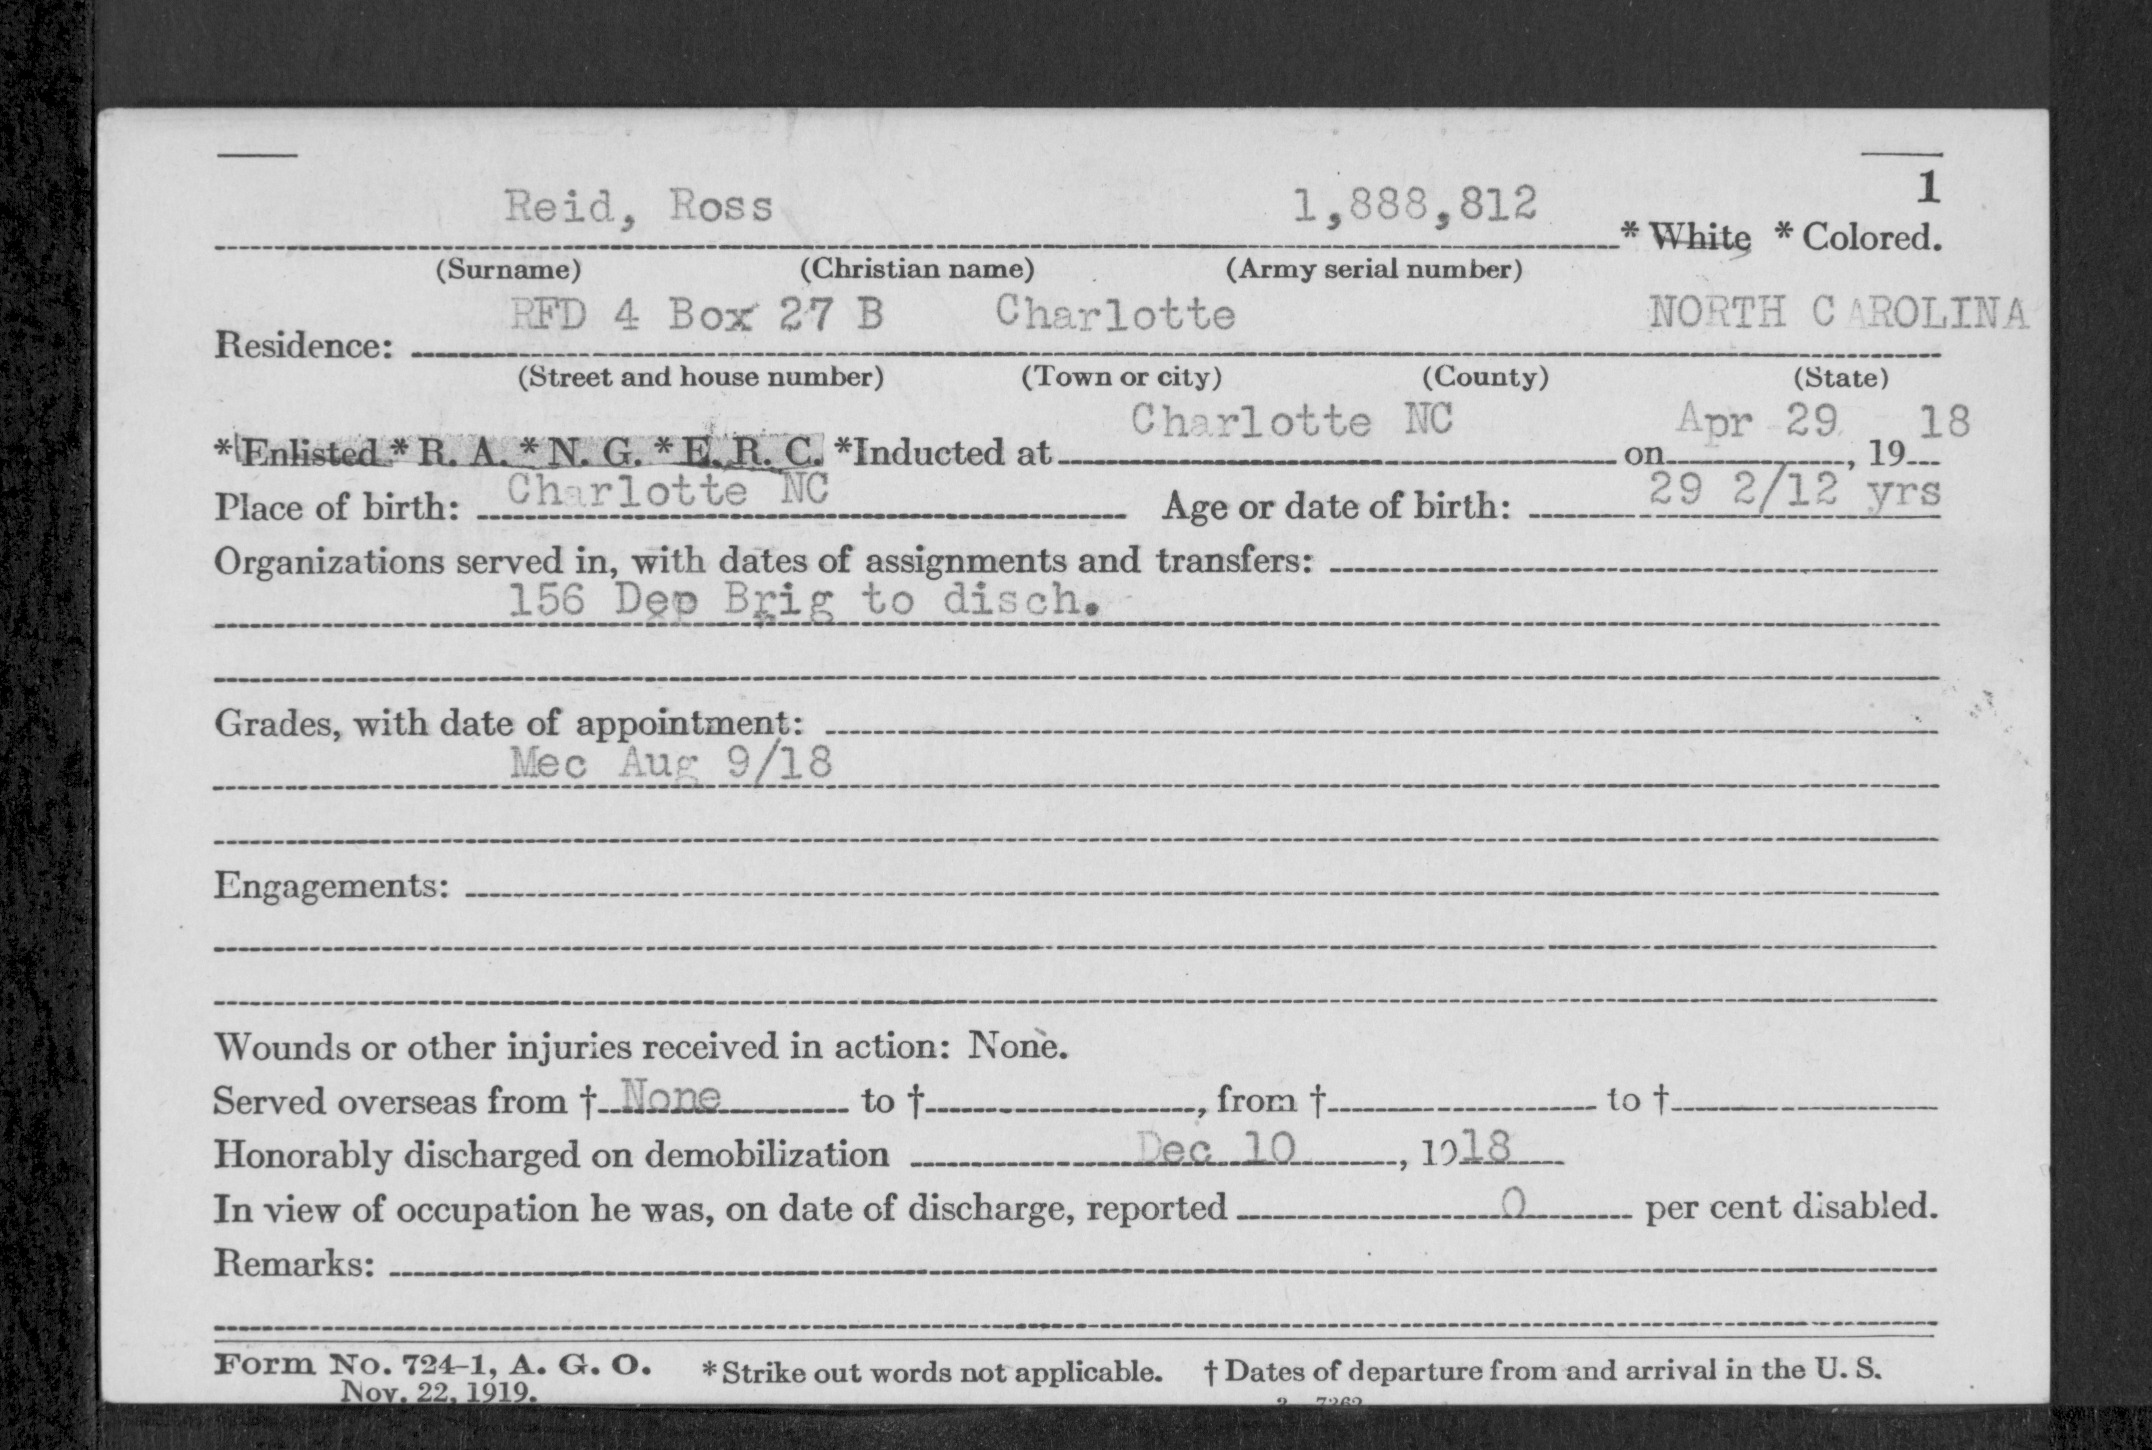 1
Reid, Ross 1,888,812 * White * Colored.
(Surname) (Christian name) (Army serial number)
RFD 4 Box 27 B Charlotte NORTH CAROLINA
Residence:
(Street and house number) (Town or city) (County) (State)
Charlotte NC Apr 29 18
* Enlisted * R. A. * N. G. * E. R. C. *Inducted at on , 19
Place of birth: Charlotte NC Age or date of birth: 29 2/12 yrs
Organizations served in, with dates of assignments and transfers:
156 Dep Brig to disch.
Grades, with date of appointment:
Mec Aug 9/18
Engagements:
Wounds or other injuries received in action: None.
Served overseas from † None to † , from † to †
Honorably discharged on demobilization Dec 10 , 1918
In view of occupation he was, on date of discharge, reported 0 per cent disabled.
Remarks:
Form No. 724-1, A. G. O. * Strike out words not applicable. † Dates of departure from and arrival in the U. S.
Nov. 22, 1919.